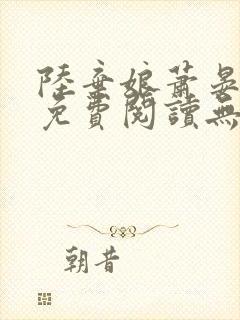 陸棄娘蕭晏
免費閱讀無
朝昔